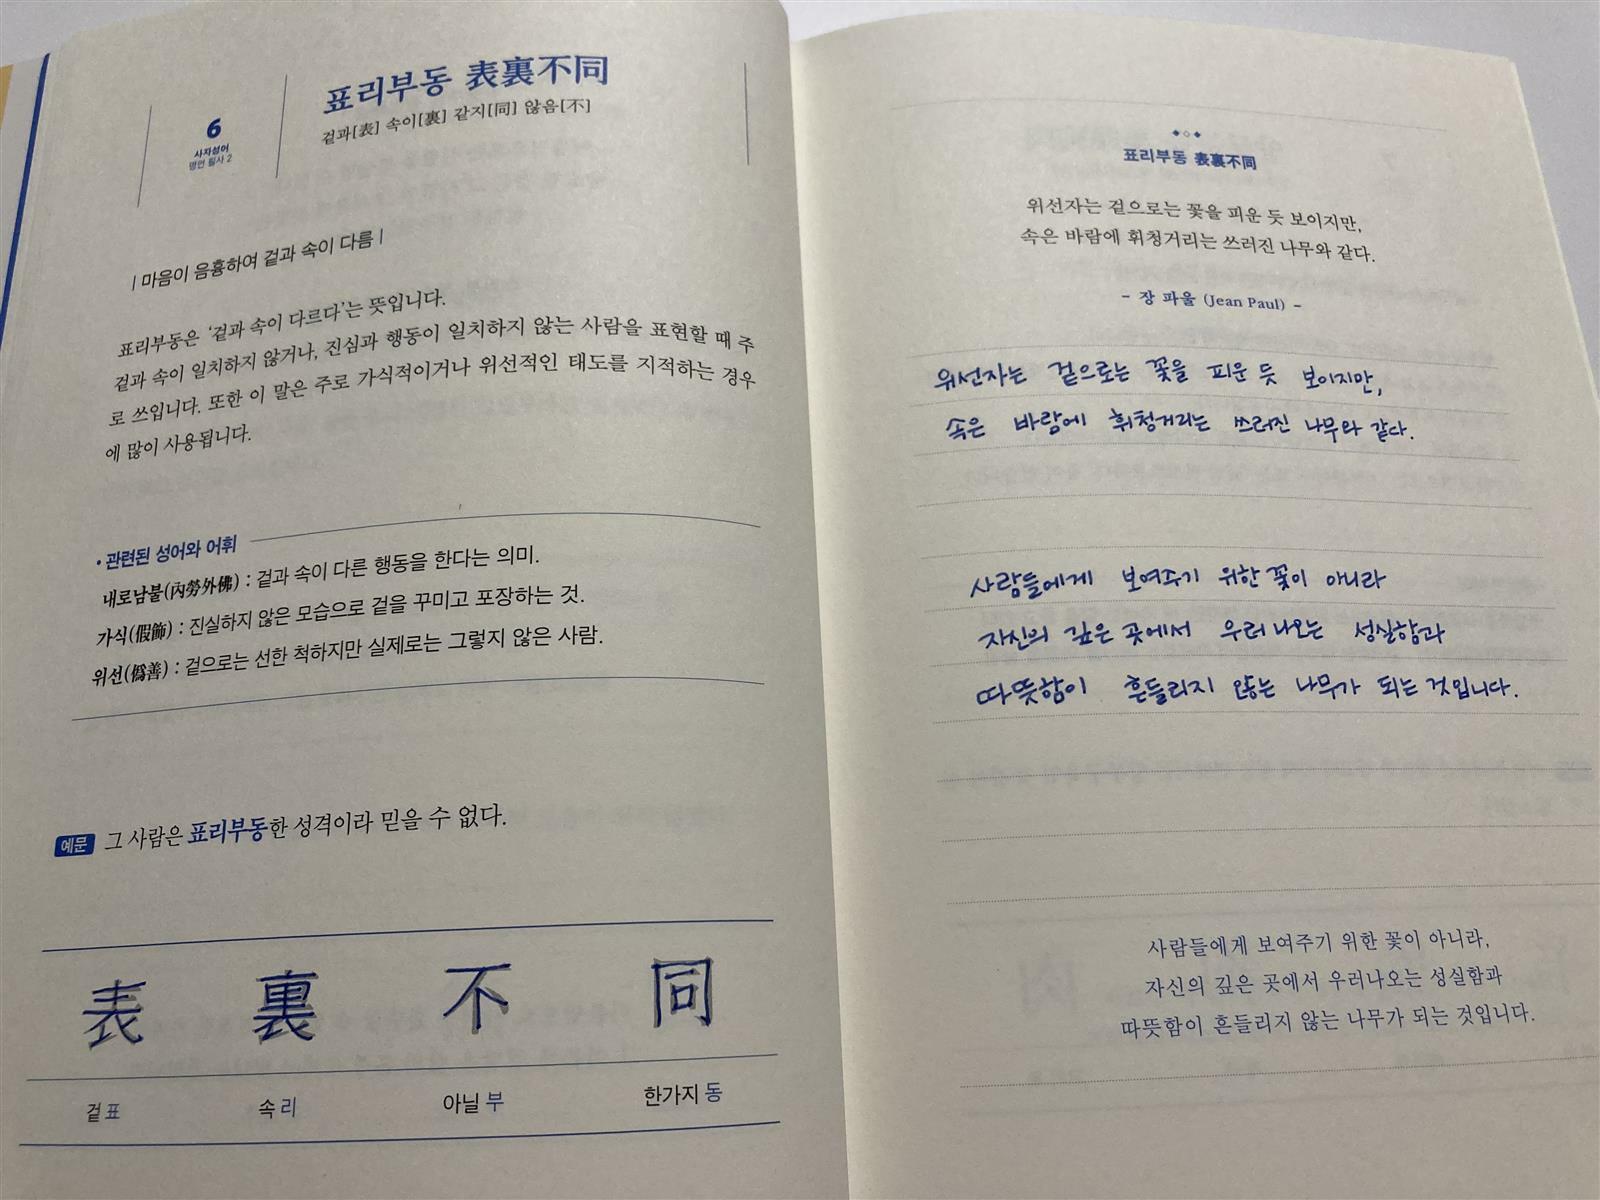 6
사자성어
명언 필사 2
표리부동 表裏不同
겉과[表] 속이[裏] 같지[同] 않음[不]
| 마음이 음흉하여 겉과 속이 다름 |
표리부동은 ‘겉과 속이 다르다’는 뜻입니다.
겉과 속이 일치하지 않거나, 진심과 행동이 일치하지 않는 사람을 표현할 때 주
로 쓰입니다. 또한 이 말은 주로 가식적이거나 위선적인 태도를 지적하는 경우
에 많이 사용됩니다.
• 관련된 성어와 어휘
내로남불(內勞外佛) : 겉과 속이 다른 행동을 한다는 의미.
가식(假飾) : 진실하지 않은 모습으로 겉을 꾸미고 포장하는 것.
위선(僞善) : 겉으로는 선한 척하지만 실제로는 그렇지 않은 사람.
예문 그 사람은 표리부동한 성격이라 믿을 수 없다.
表 裏 不 同
겉 표 속 리 아닐 부 한가지 동
표리부동 表裏不同
위선자는 겉으로는 꽃을 피운 듯 보이지만,
속은 바람에 휘청거리는 쓰러진 나무와 같다.
- 장 파울 (Jean Paul) -
위선자는 겉으로는 꽃을 피운 듯 보이지만,
속은 바람에 휘청거리는 쓰러진 나무와 같다.
사람들에게 보여주기 위한 꽃이 아니라
자신의 깊은 곳에서 우러나오는 성실함과
따뜻함이 흔들리지 않는 나무가 되는 것입니다.
사람들에게 보여주기 위한 꽃이 아니라,
자신의 깊은 곳에서 우러나오는 성실함과
따뜻함이 흔들리지 않는 나무가 되는 것입니다.